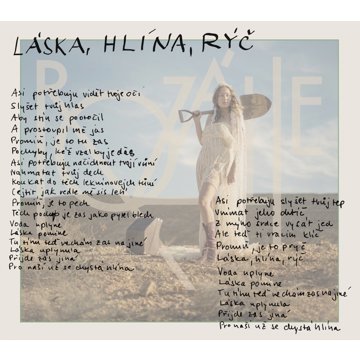 LÁSKA, HLÍNA, RÝČ
ROZÁLIE
Asi potřebuju vidět tvoje oči
Slyšet tvůj hlas
Aby stín se pootočil
A prostoupil mě jas
Promiň, je to tu zas
Pochyby, kéž vzal by je ďas
Asi potřebuju načichnout tvojí vůní
Nahmatat tvůj dech
Koukat do těch leknínových tůní
Cejtit jak vedle mě sis leh
Promiň, je to pech
Těch podup je zas jako pytel blech
Voda uplyne
Láska pomine
Tu tíhu teď nechám zas na jiné
Láska uplynula
Přijde zas jiná
Pro naši už se chystá hlína
Asi potřebuju slyšet tvůj tep
Vnímat jeho
Z mýho srdce vysát jed
Ale teď ti vracím klíč
Promiň, je to pryč
Láska, hlína, rýč
Voda uplyne
Láska pomine
Tu tíhu teď nechám zas na jiné
Láska uplynula
Přijde zas jiná
Pro naši už se chystá hlína